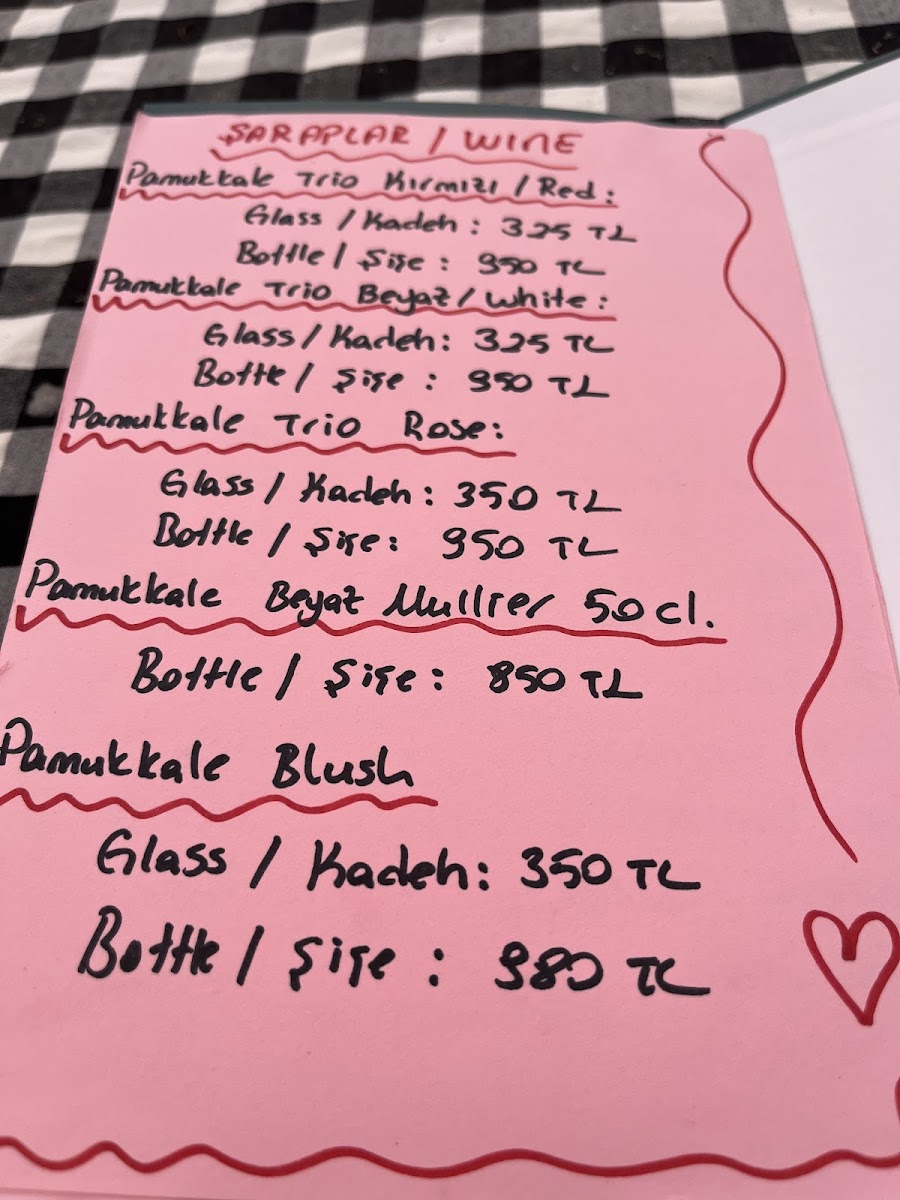 ŞARAPLAR / WINE
Pamukkale Trio Kırmızı / Red:
Glass / Kadeh: 325 TL
Bottle / Şişe: 950 TL
Pamukkale Trio Beyaz / White:
Glass / Kadeh: 325 TL
Bottle / Şişe: 950 TL
Pamukkale Trio Rose:
Glass / Kadeh: 350 TL
Bottle / Şişe: 950 TL
Pamukkale Beyaz 50cl.
Bottle / Şişe: 850 TL
Pamukkale Blush
Glass / Kadeh: 350 TL
Bottle / Şişe: 980 TL